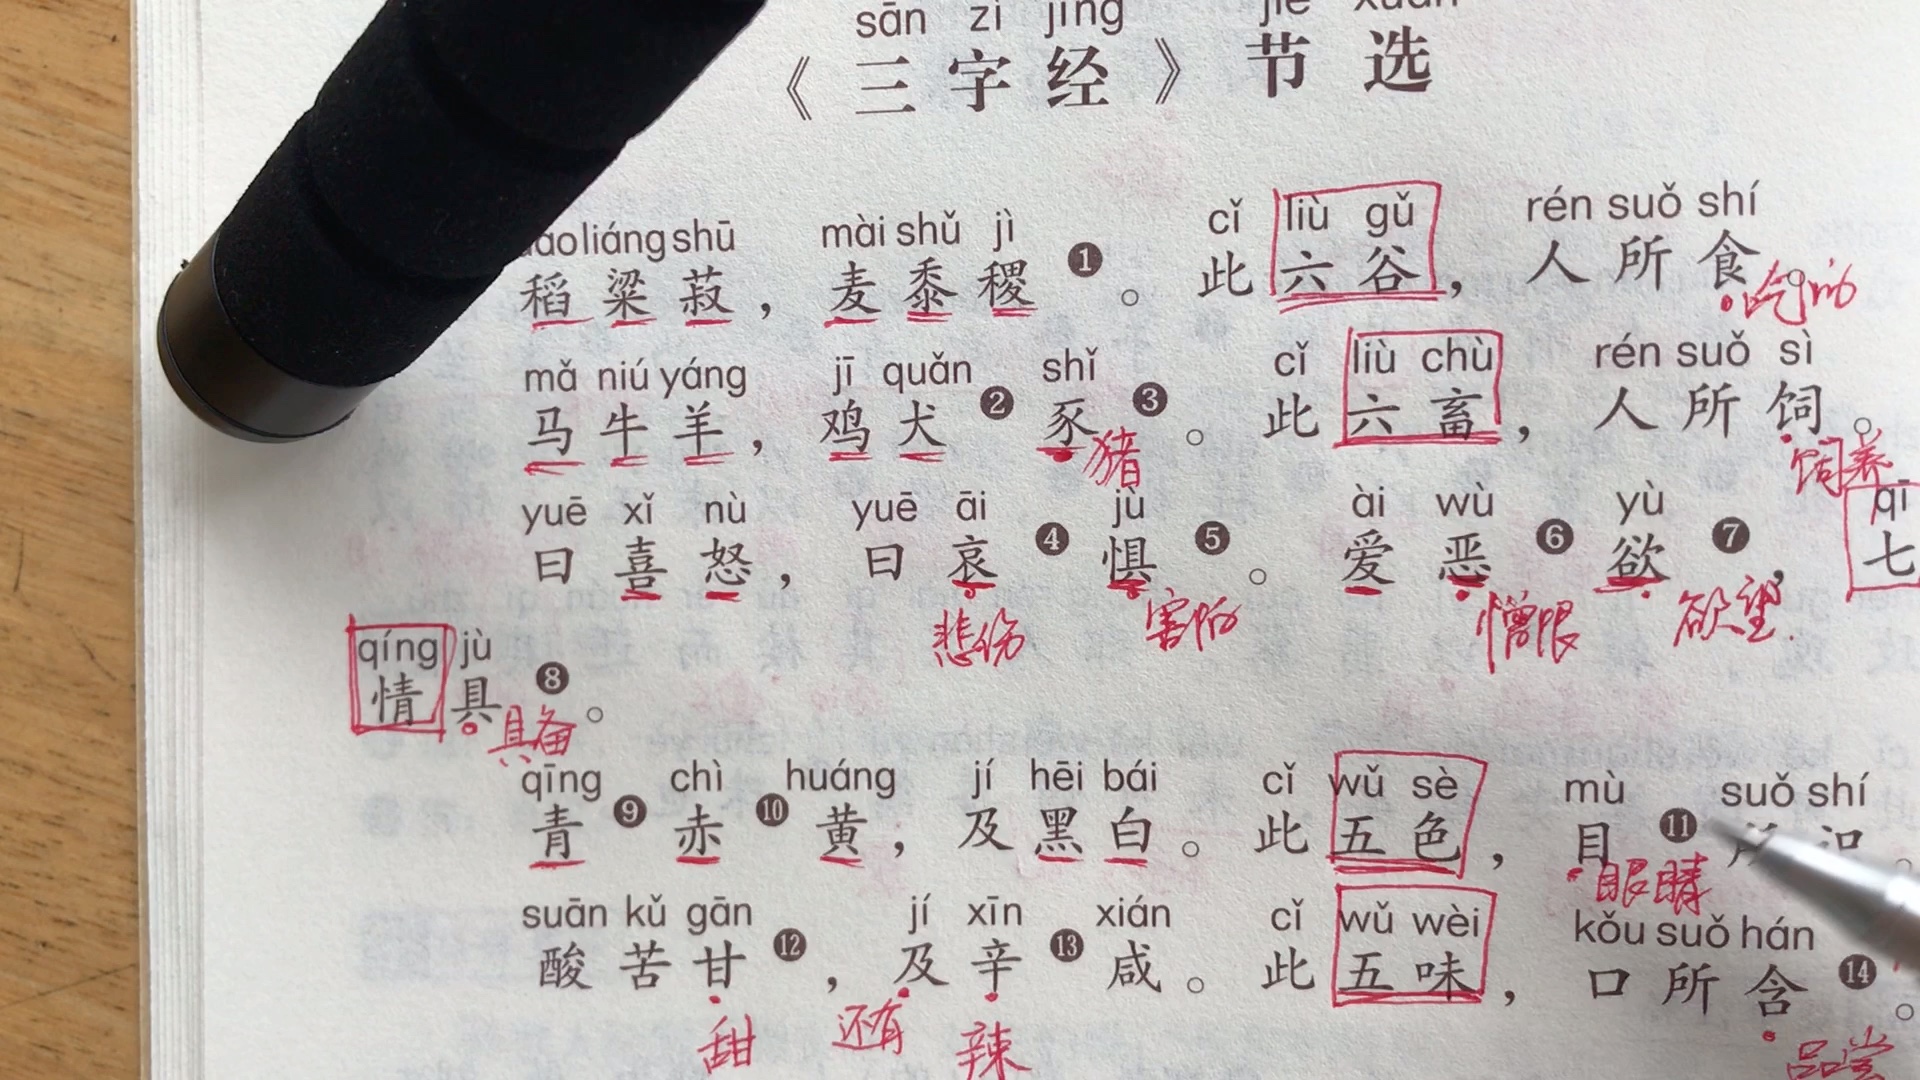 sān zì jīng jié xuǎn
《三字经》节选
liáng shū mài shǔ jì cǐ liù gǔ rén suǒ shí
稻粱菽，麦黍稷❶。此六谷，人所食。
吃的
mǎ niú yáng jī quǎn shǐ cǐ liù chù rén suǒ sì
马牛羊，鸡犬❷豕❸。此六畜，人所饲。
猪 饲养
yuē xǐ nù yuē āi jù ài wù yù qī
曰喜怒，曰哀❹惧❺。爱恶❻欲❼，七
悲伤 害怕 憎恨 欲望
qíng jù
情具❽。
具备
qīng chì huáng jí hēi bái cǐ wǔ sè mù suǒ shí
青❾赤❿黄，及黑白。此五色，目⓫
眼睛
suān kǔ gān jí xīn xián cǐ wǔ wèi kǒu suǒ hán
酸苦甘⓬，及辛⓭咸。此五味，口所含⓮。
甜 还有 辣 品尝